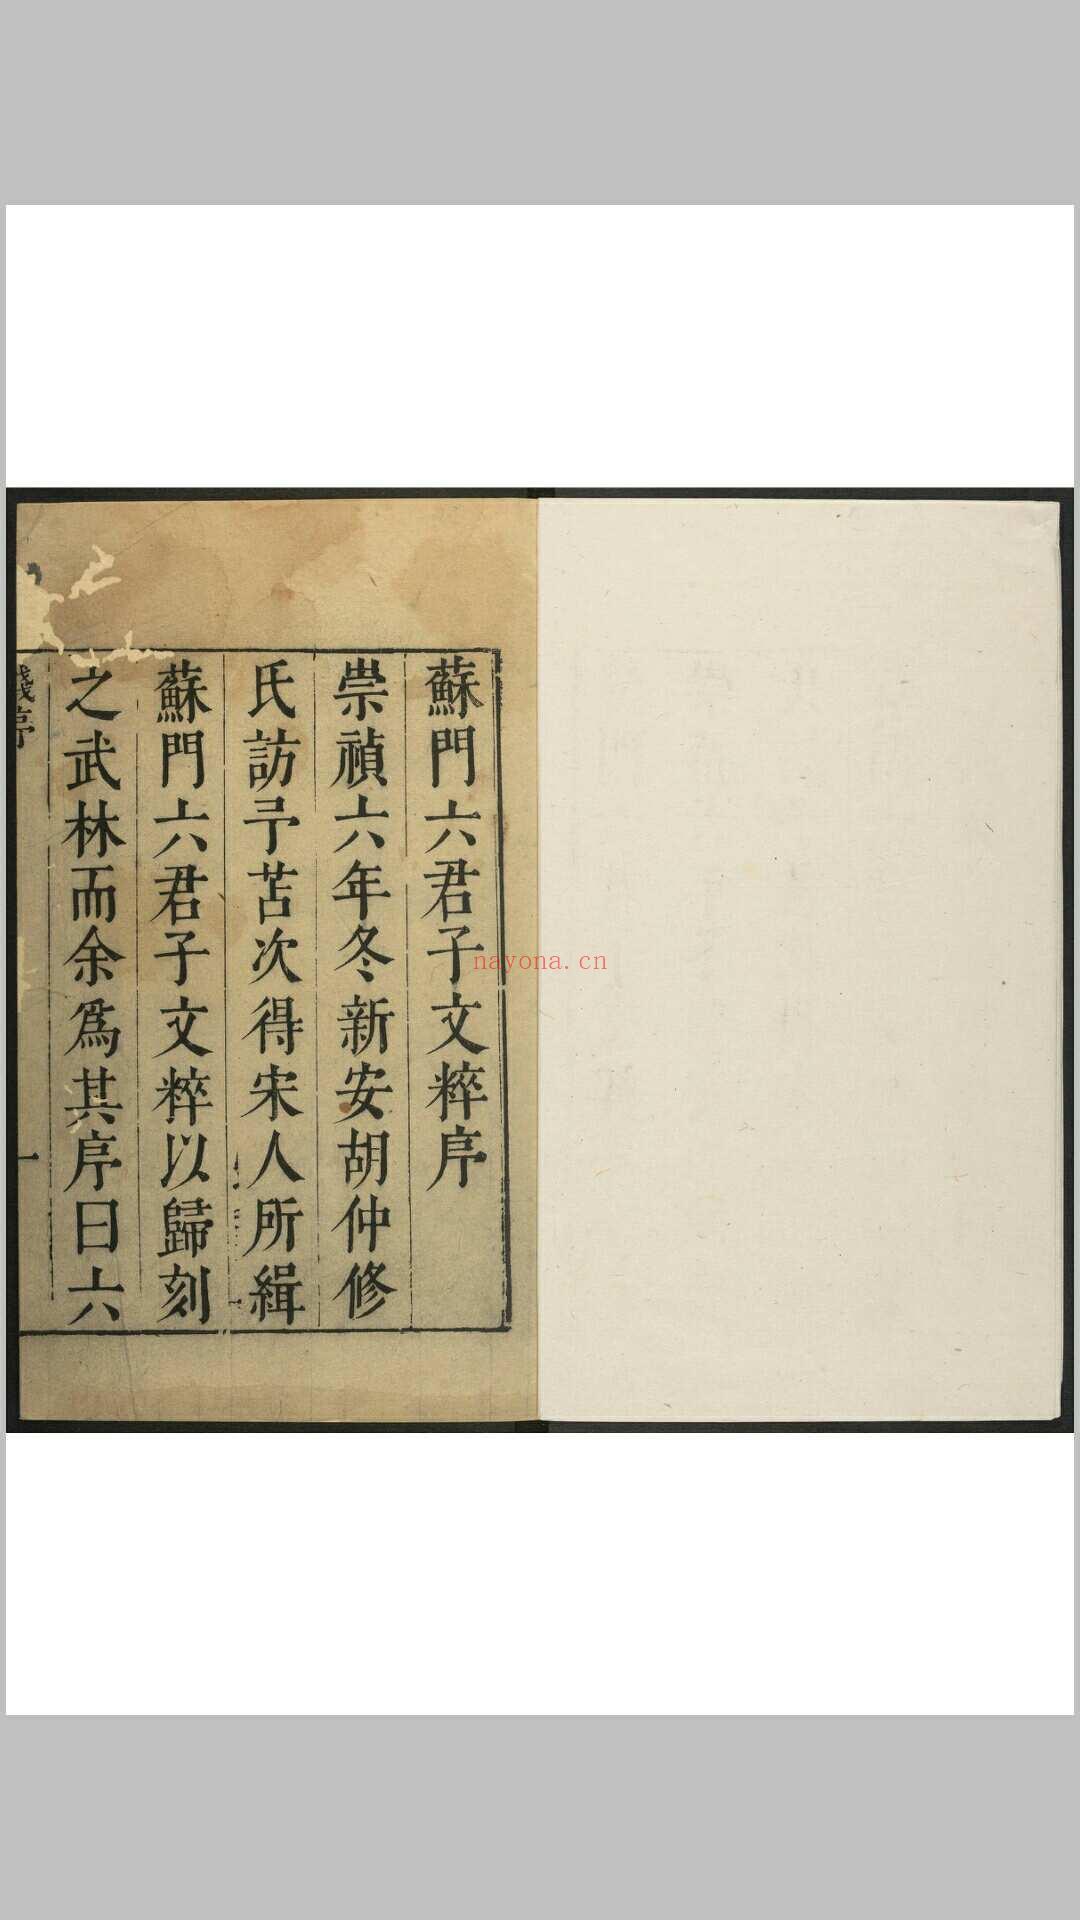 蘇門六君子文粹序
崇禎六年冬新安胡仲修
氏訪予苫次得宋人所緝
蘇門六君子文粹以歸刻
之武林而余為其序曰六
錢序
一
nayona.cn